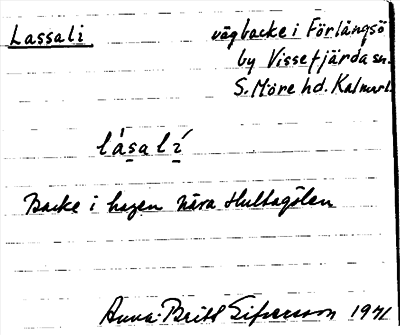 Lassali
vägbacke i Förlångsö
by Vissefjärda sn.
S. Möre hd. Kalmar l.
lásalí
Backe i hagen nära Hultagölen
Anna-Britt Sifversson 1971